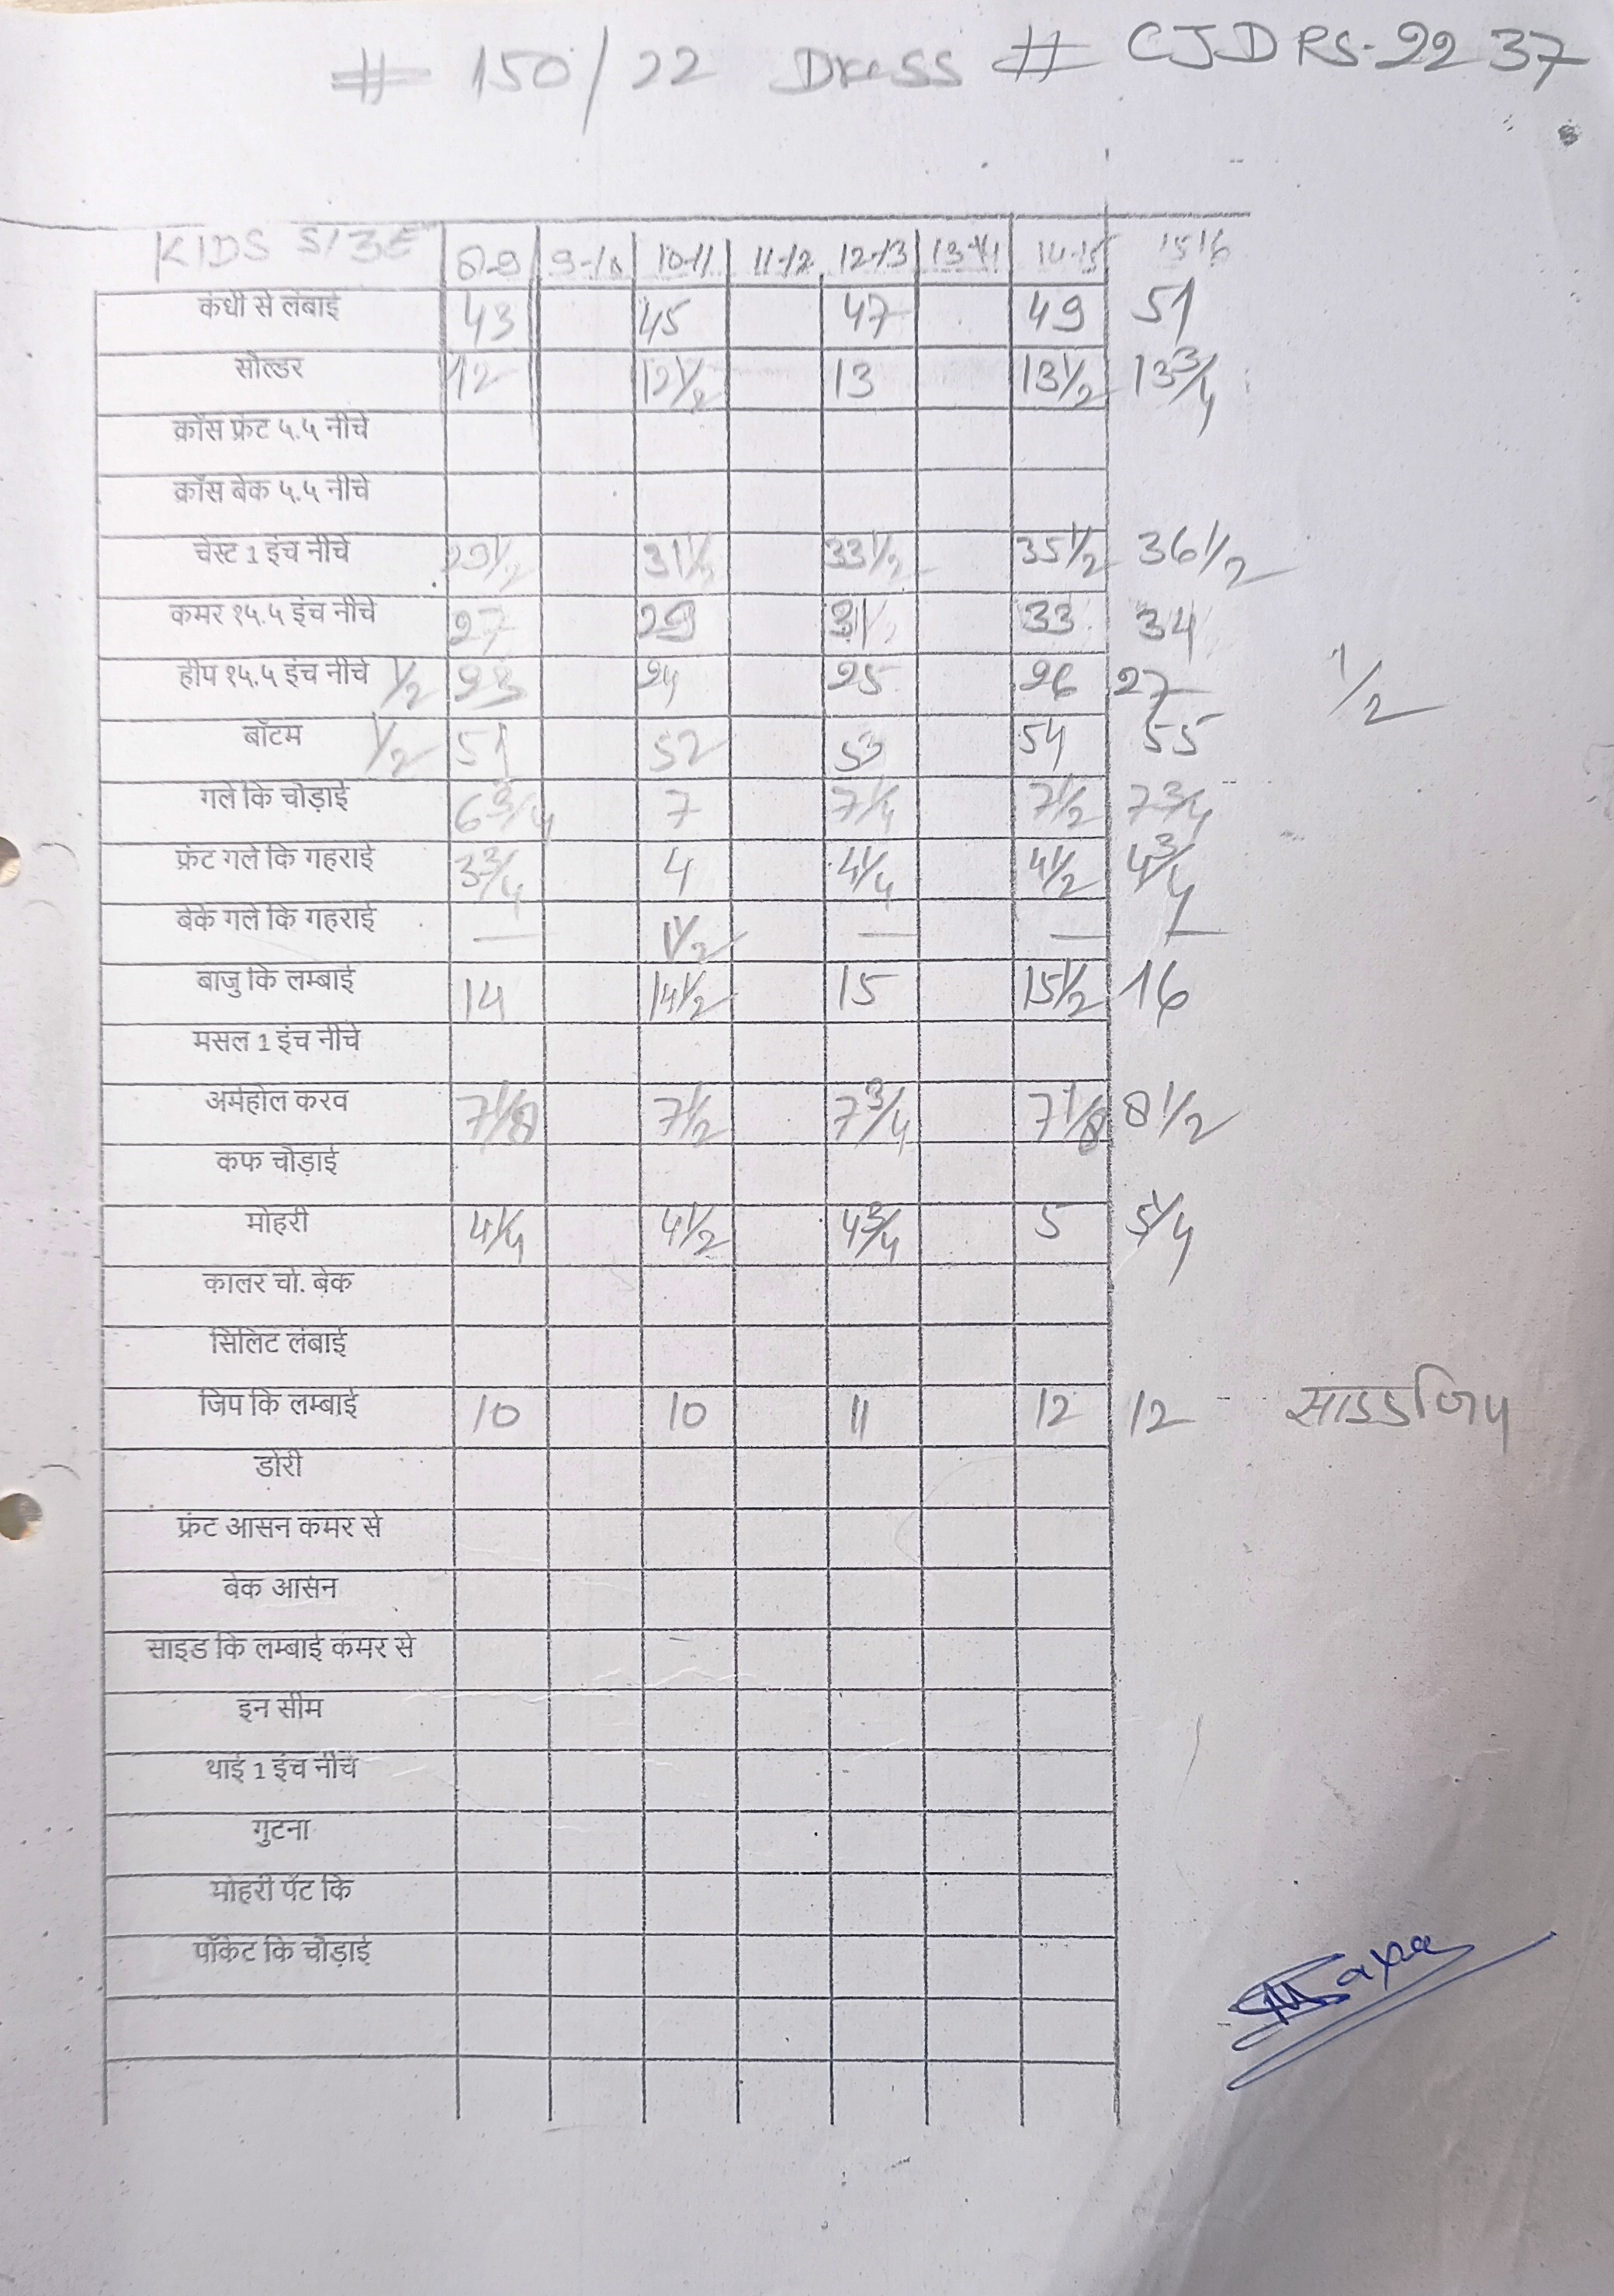 # 150/22 Dress # CJDRS-2237
KIDS SIZE 8-9 9-10 10-11 11-12 12-13 13-14 14-15 15 16
कंधी से लंबाई 43 45 47 49 51
सोल्डर 12 12 1/2 13 13 1/2 13 3/4
क्रॉस फ्रंट ५.५ नीचे
क्रॉस बेक ५.५ नीचे
चेस्ट 1 इंच नीचे 29 1/2 31 1/2 33 1/2 35 1/2 36 1/2
कमर १५.५ इंच नीचे 27 29 31 33 34
हीप १५.५ इंच नीचे 1/2 23 24 25 26 27 1/2
बॉटम 1/2 51 52 53 54 55
गले कि चौड़ाई 6 3/4 7 7 1/4 7 1/2 7 3/4
फ्रंट गले कि गहराई 3 3/4 4 4 1/4 4 1/2 4 3/4
बेके गले कि गहराई — 1 1/2 — — —
बाजु कि लम्बाई 14 14 1/2 15 15 1/2 16
मसल 1 इंच नीचे
अर्महोल करव 7 1/8 7 1/2 7 3/4 7 1/8 8 1/2
कफ चौड़ाई
मोहरी 4 1/4 4 1/2 4 3/4 5 5 1/4
कालर चो. बेक
सिलिट लंबाई
जिप कि लम्बाई 10 10 11 12 12 साइडजिप
डोरी
फ्रंट आसन कमर से
बेक आसन
साइड कि लम्बाई कमर से
इन सीम
थाई 1 इंच नीचे
गुटना
मोहरी पेंट कि
पॉकेट कि चौड़ाई